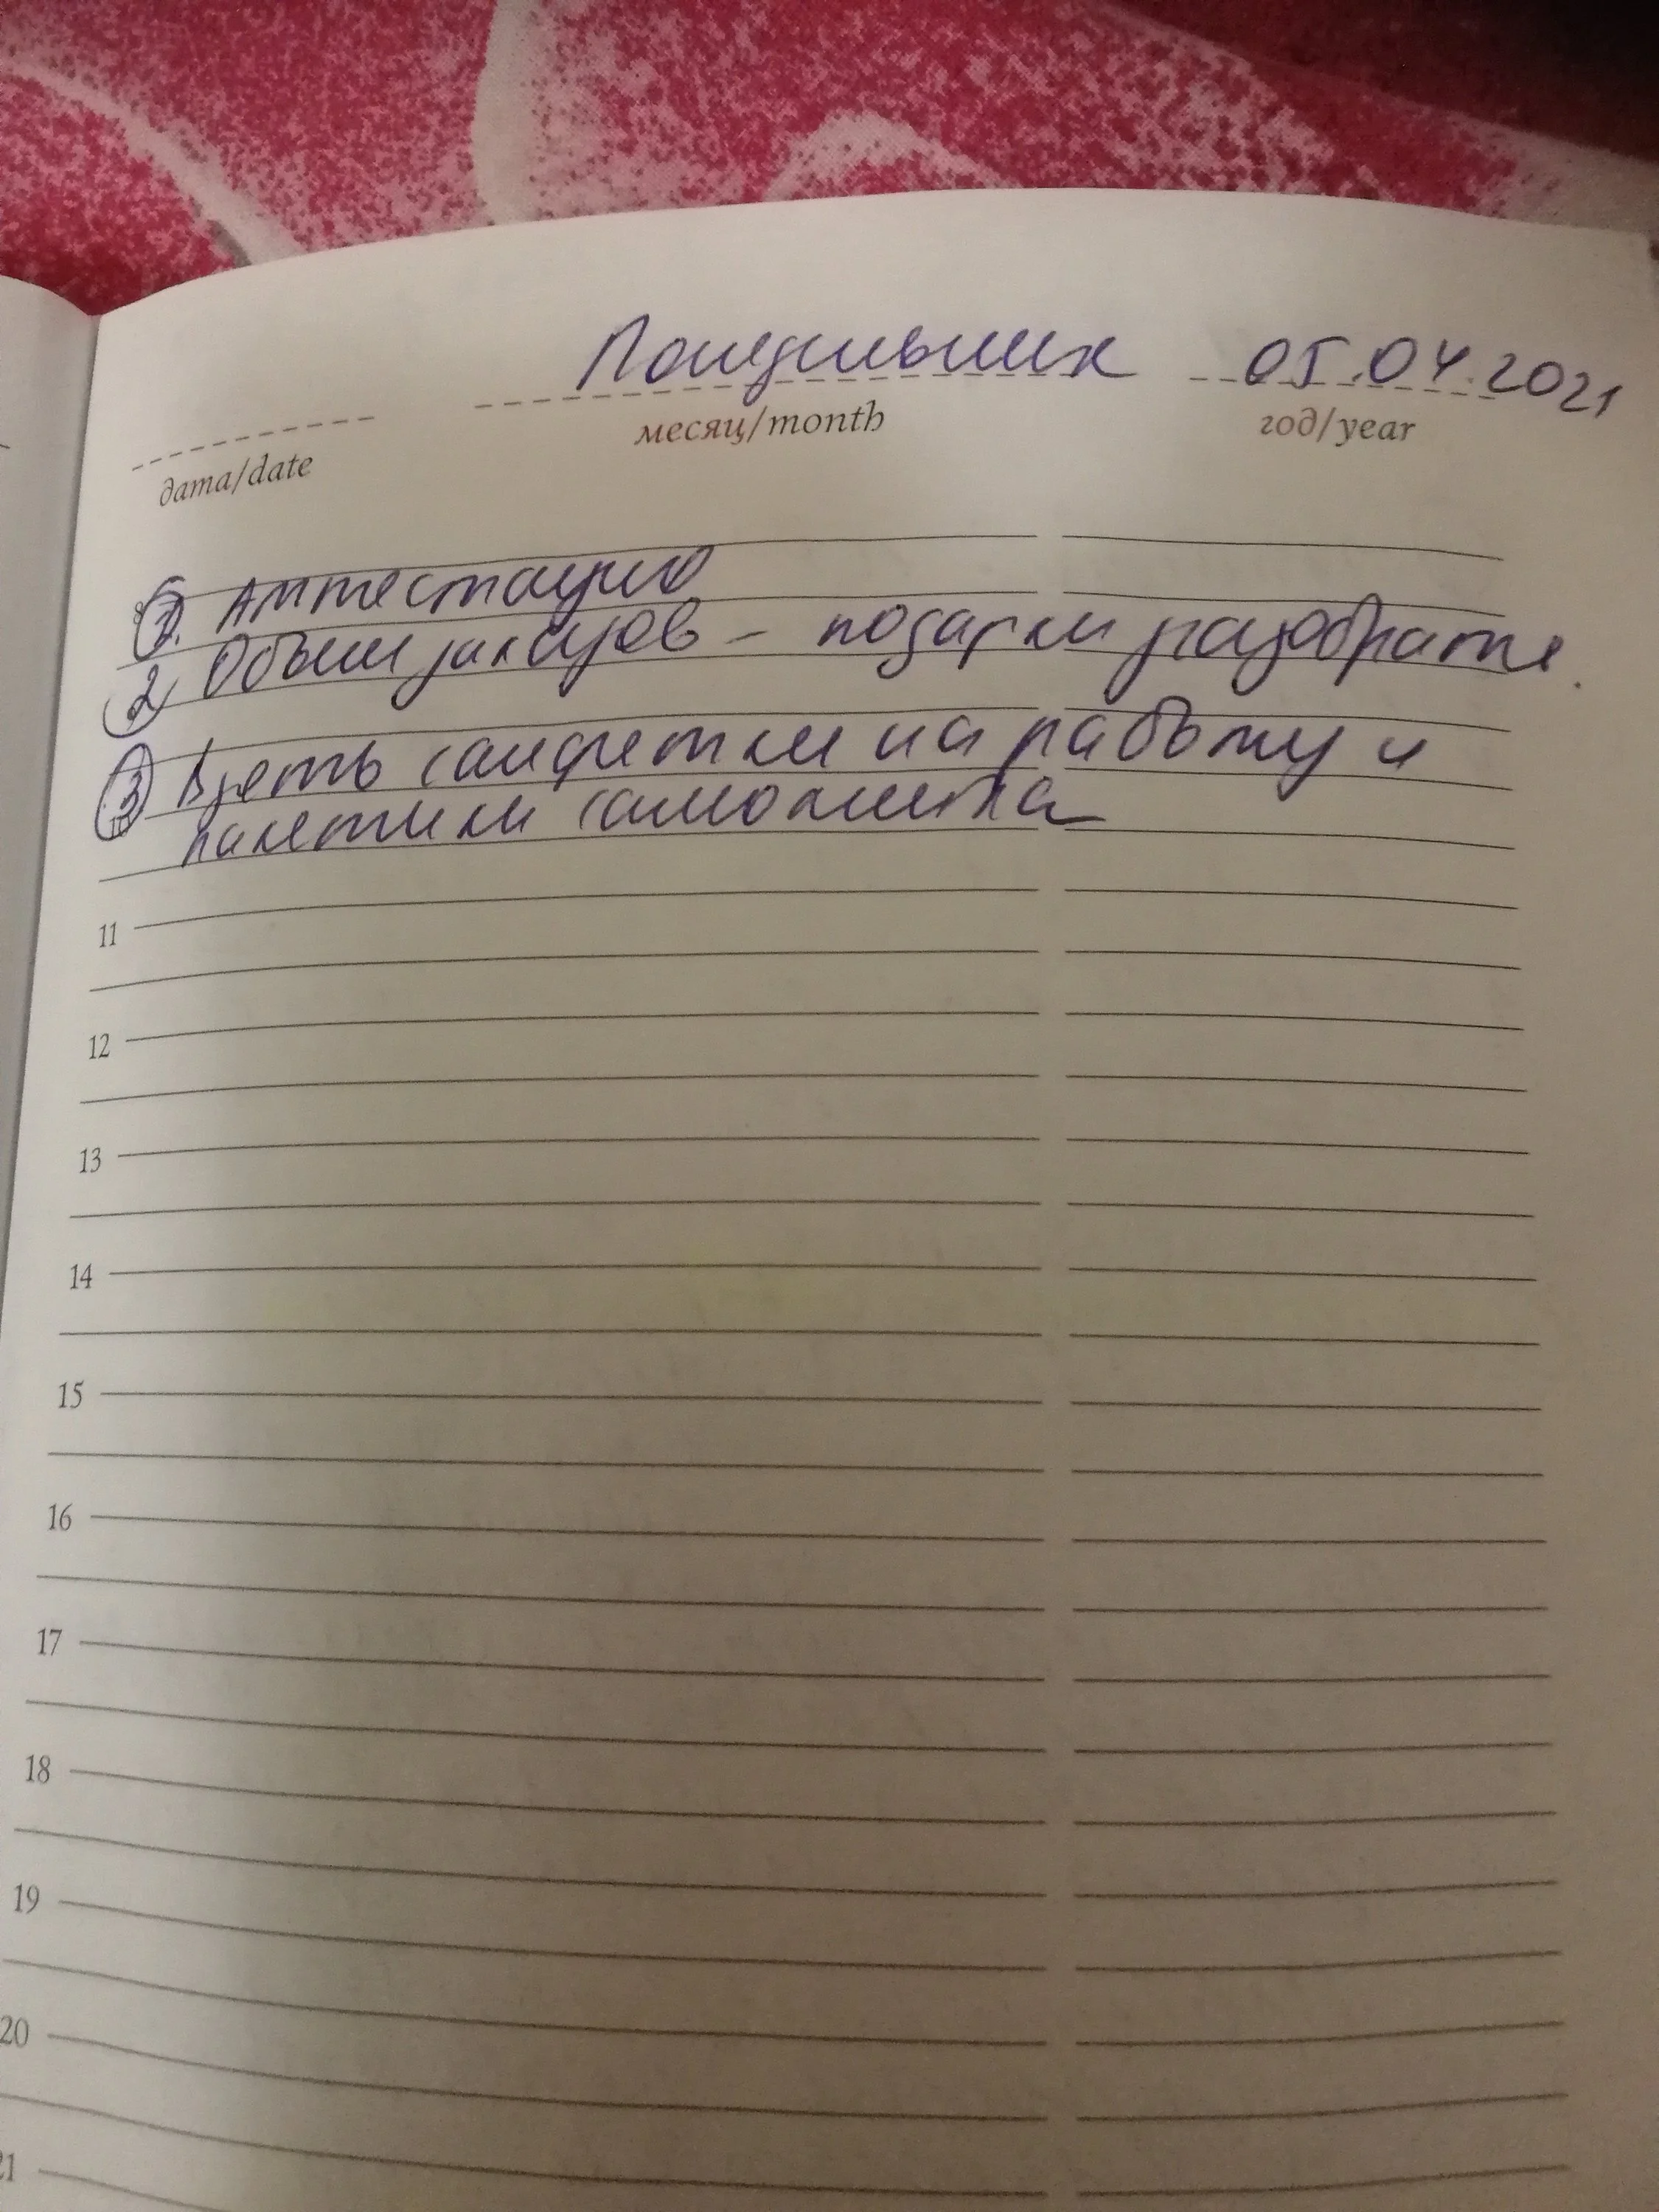 Понедельник 05.04.2021
дата/date месяц/month год/year
1. Аттестацию
2 Обзвон заказов - подарки разобрать.
3 Взять салфетки на работу и
пакетики самоклейка
11
12
13
14
15
16
17
18
19
20
21